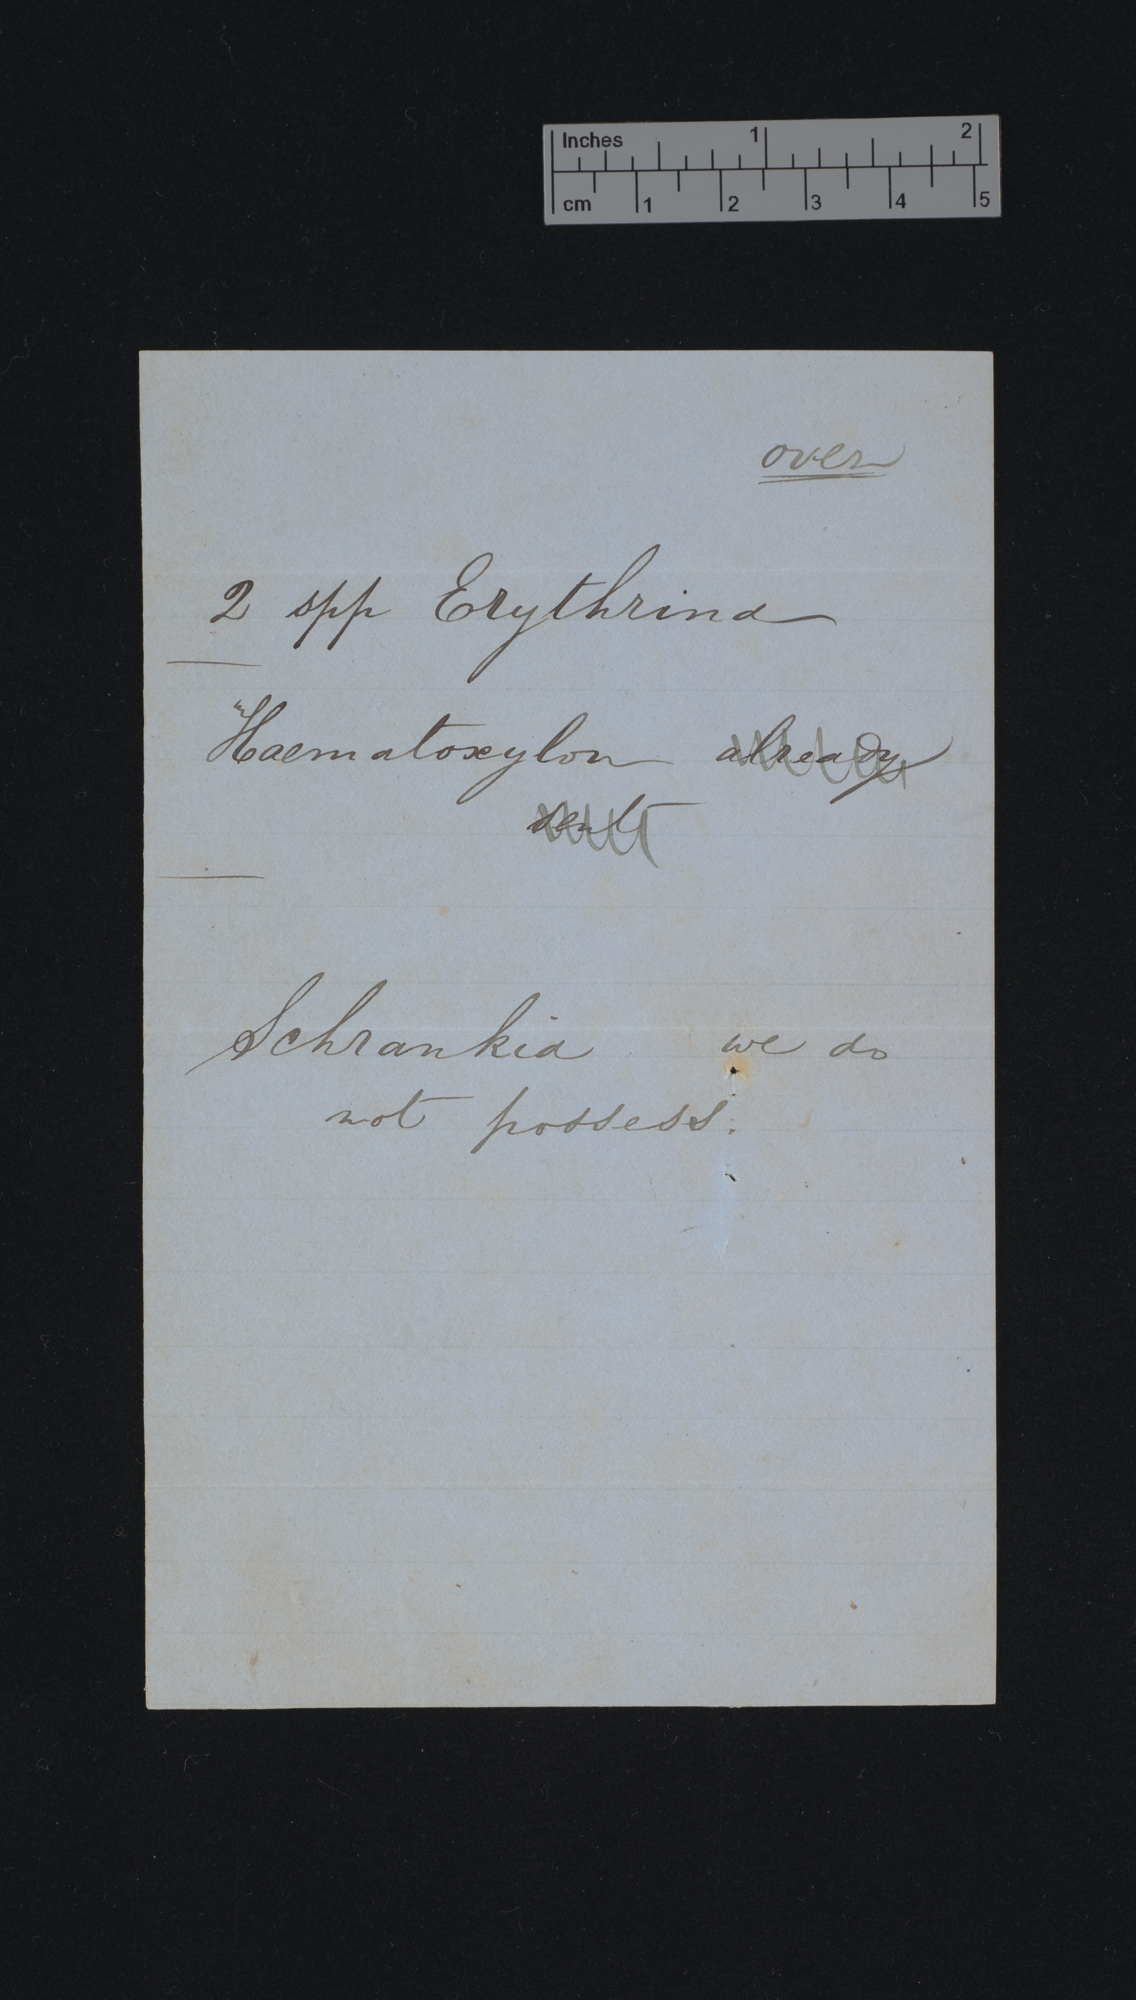 Inches 1 2
cm 1 2 3 4 5
over
2 spp Erythrina
Haematoxylon already
sent
Schrankia we do
not possess.